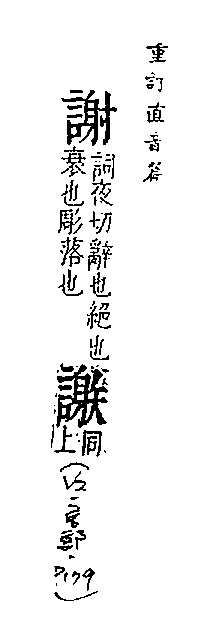 重訂直音篇
謝 詞夜切辭也絕也
衰也彫落也
𧬄 同上